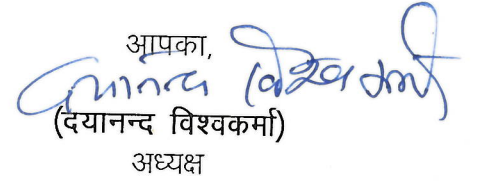 आपका,
दयानन्द विश्वकर्मा
(दयानन्द विश्वकर्मा)
अध्यक्ष